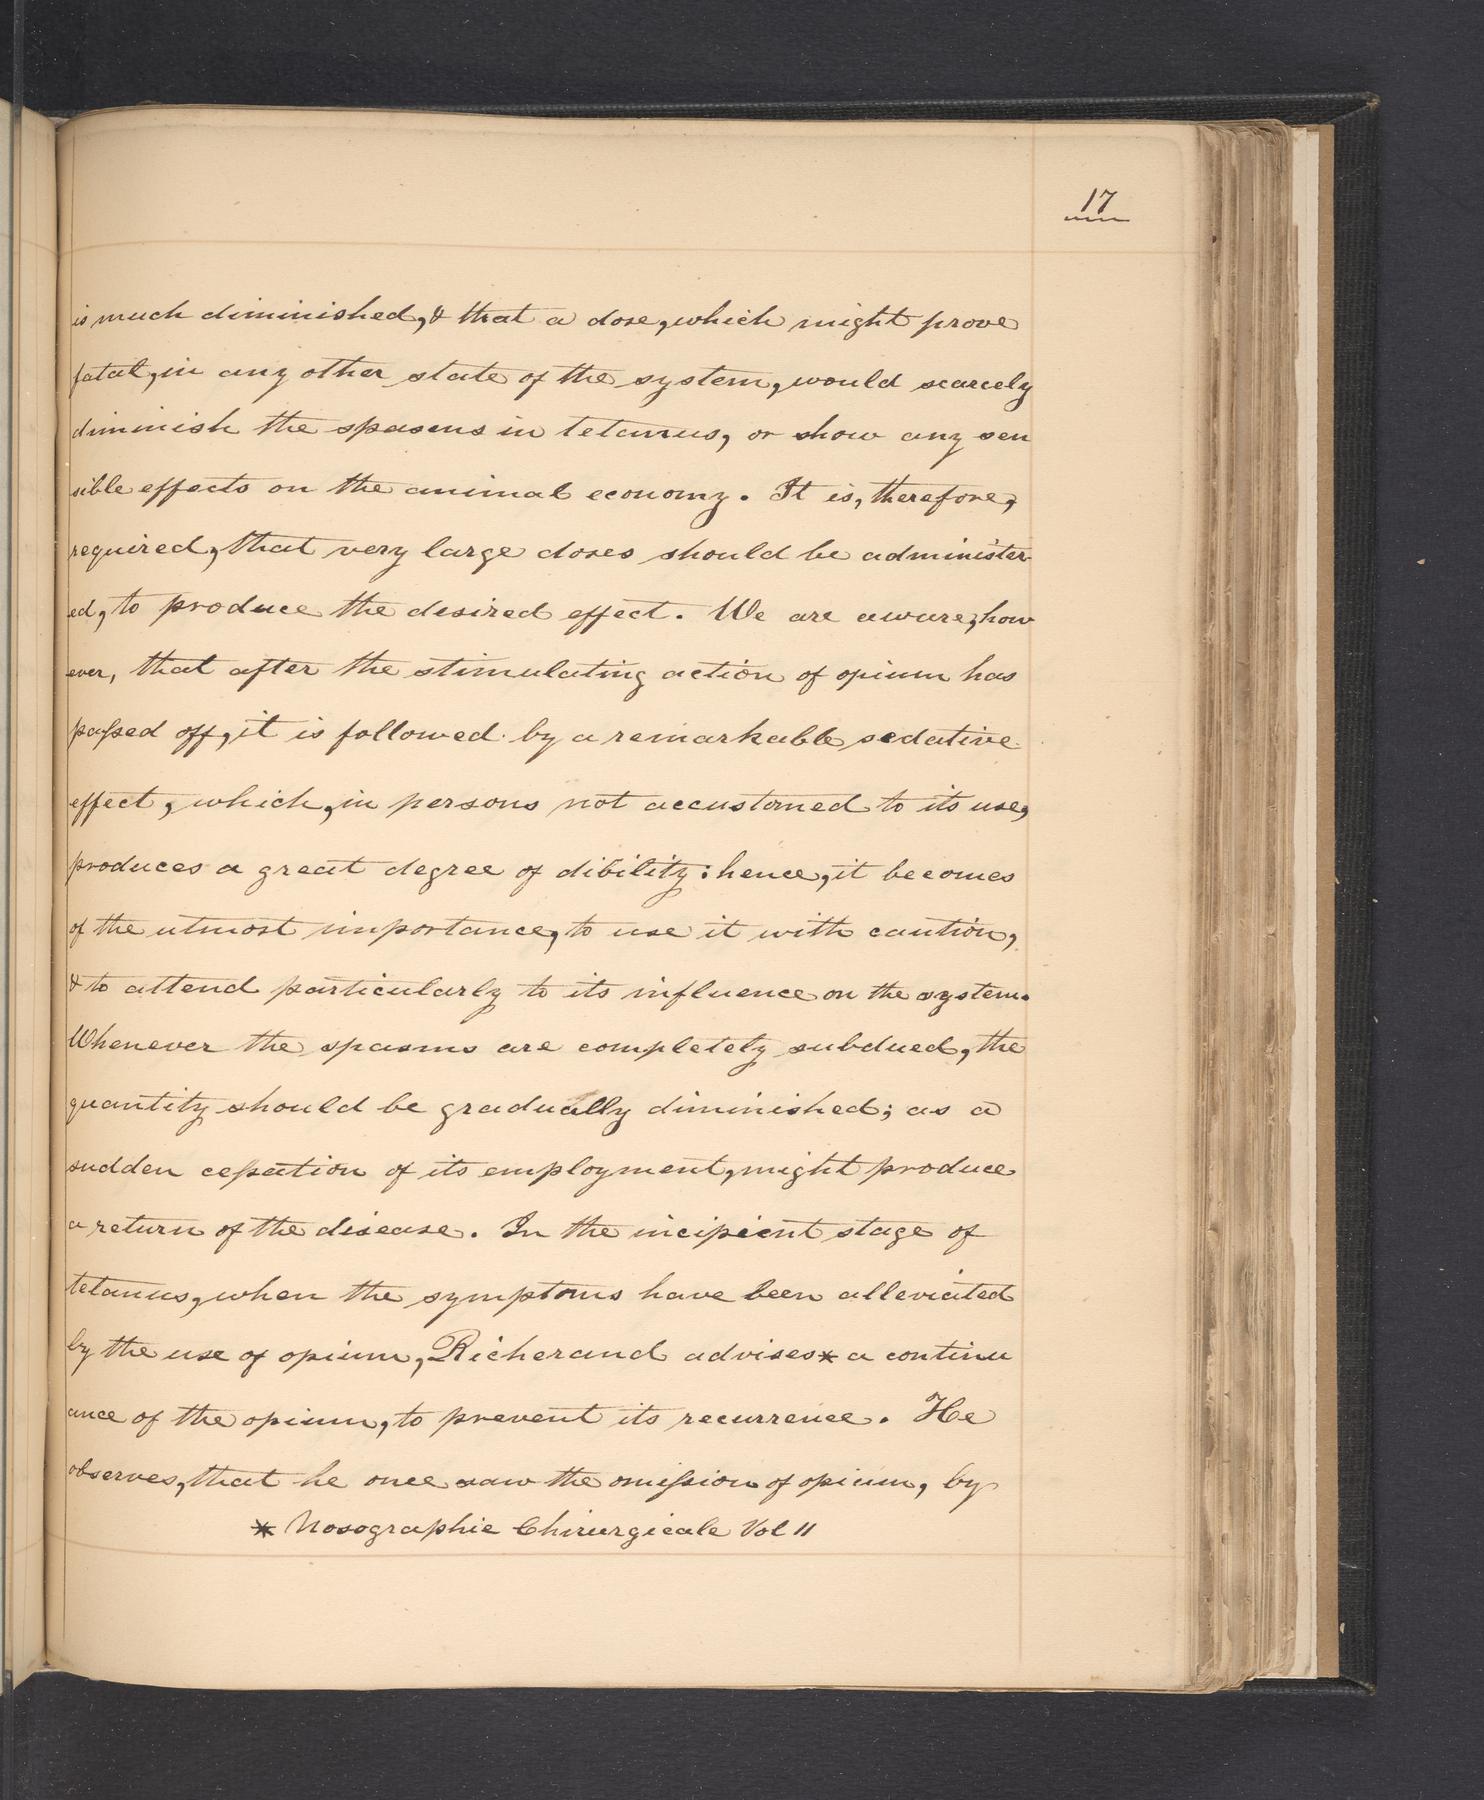 17
is much diminished, & that a dose, which might prove
fatal, in any other state of the system, would scarcely
diminish the spasms in tetanus, or show any sen
sible effects on the animal economy. It is, therefore,
required, that very large doses should be administer
ed, to produce the desired effect. We are aware, how
ever, that after the stimulating action of opium has
paſsed off, it is followed by a remarkable sedative
effect, which, in persons not accustomed to its use,
produces a great degree of dibility: hence, it becomes
of the utmost importance, to use it with caution,
& to attend particularly to its influence on the system.
Whenever the spasms are completely subdued, the
quantity should be gradually diminished; as a
sudden ceſsation of its employment, might produce
a return of the disease. In the incipient stage of
tetanus, when the symptoms have been alleviated
by the use of opium, Richerand advises* a continu
ance of the opium, to prevent its recurrence. He
observes, that he once saw the omiſsion of opium, by
* Nosographie Chirurgicale Vol II